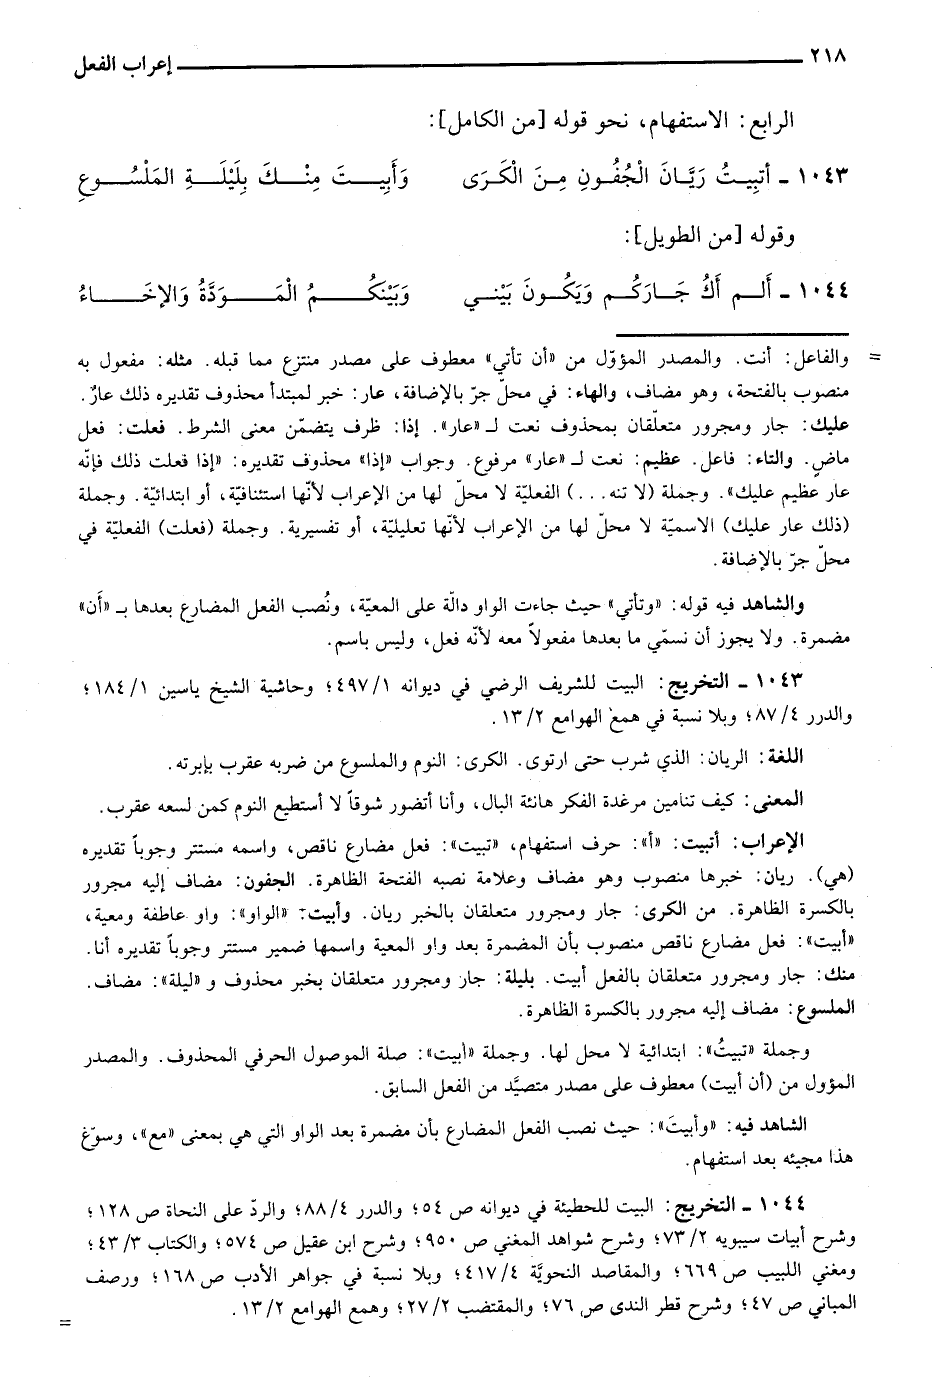 ٢١٨ ــــــ إعراب الفعل
الرابع: الاستفهام، نحو قوله [من الكامل]:
١٠٤٣ - أَتَبِيتُ رَيَّانَ الْجُفُونِ مِنَ الْكَرَى وَأَبِيتَ مِنْكَ بِلَيْلَةِ المَلْسُوعِ
وقوله [من الطويل]:
١٠٤٤ - أَلم أَكُ جَارَكُم وَيَكُونَ بَيْني وَبَيْنَكُمُ الْمَوَدَّةُ وَالإخَاءُ
= والفاعل: أنت. والمصدر المؤوّل من «أن تأتي» معطوف على مصدر منتزع مما قبله. مثله: مفعول به
منصوب بالفتحة، وهو مضاف، والهاء: في محلّ جرّ بالإضافة، عار: خبر لمبتدأ محذوف تقديره ذلك عارٌ.
عليك: جار ومجرور متعلّقان بمحذوف نعت لـ «عار». إذا: ظرف يتضمّن معنى الشرط. فعلت: فعل
ماضٍ. والتاء: فاعل. عظيم: نعت لـ «عار» مرفوع. وجواب «إذا» محذوف تقديره: «إذا فعلت ذلك فإنّه
عار عظيم عليك». وجملة (لا تنه...) الفعليّة لا محلّ لها من الإعراب لأنّها استئنافيّة، أو ابتدائيّة. وجملة
(ذلك عار عليك) الاسميّة لا محلّ لها من الإعراب لأنّها تعليليّة، أو تفسيرية. وجملة (فعلت) الفعليّة في
محلّ جرّ بالإضافة.
والشاهد فيه قوله: «وتأتي» حيث جاءت الواو دالّة على المعيّة، ونُصب الفعل المضارع بعدها بـ «أَن»
مضمرة. ولا يجوز أن نسمّي ما بعدها مفعولاً معه لأنّه فعل، وليس باسم.
١٠٤٣ - التخريج: البيت للشريف الرضي في ديوانه ٤٩٧/١؛ وحاشية الشيخ ياسين ١٨٤/١؛
والدرر ٨٧/٤؛ وبلا نسبة في همع الهوامع ١٣/٢.
اللغة: الريان: الذي شرب حتى ارتوى. الكرى: النوم والملسوع من ضربه عقرب بإبرته.
المعنى: كيف تنامين مرغدة الفكر هانئة البال، وأنا أتضور شوقاً لا أستطيع النوم كمن لسعه عقرب.
الإعراب: أتبيت: «أ»: حرف استفهام، «تبيت»: فعل مضارع ناقص، واسمه مستتر وجوباً تقديره
(هي). ريان: خبرها منصوب وهو مضاف وعلامة نصبه الفتحة الظاهرة. الجفون: مضاف إليه مجرور
بالكسرة الظاهرة. من الكرى: جار ومجرور متعلقان بالخبر ريان. وأبيت: «الواو»: واو عاطفة ومعية،
«أبيت»: فعل مضارع ناقص منصوب بأن المضمرة بعد واو المعية واسمها ضمير مستتر وجوباً تقديره أنا.
منك: جار ومجرور متعلقان بالفعل أبيت. بليلة: جار ومجرور متعلقان بخبر محذوف و «ليلة»: مضاف.
الملسوع: مضاف إليه مجرور بالكسرة الظاهرة.
وجملة «تبيتُ»: ابتدائية لا محل لها. وجملة «أبيت»: صلة الموصول الحرفي المحذوف. والمصدر
المؤول من (أن أبيت) معطوف على مصدر متصيَّد من الفعل السابق.
الشاهد فيه: «وأبيتَ»: حيث نصب الفعل المضارع بأن مضمرة بعد الواو التي هي بمعنى «مع»، وسوّغ
هذا مجيئه بعد استفهام.
١٠٤٤ - التخريج: البيت للحطيئة في ديوانه ص ٥٤؛ والدرر ٨٨/٤؛ والردّ على النحاة ص ١٢٨؛
وشرح أبيات سيبويه ٧٣/٢؛ وشرح شواهد المغني ص ٩٥٠؛ وشرح ابن عقيل ص ٥٧٤؛ والكتاب ٤٣/٣؛
ومغني اللبيب ص ٦٦٩؛ والمقاصد النحويَّة ٤١٧/٤؛ وبلا نسبة في جواهر الأدب ص ١٦٨؛ ورصف
المباني ص ٤٧؛ وشرح قطر الندى ص ٧٦؛ والمقتضب ٢٧/٢؛ وهمع الهوامع ١٣/٢. =